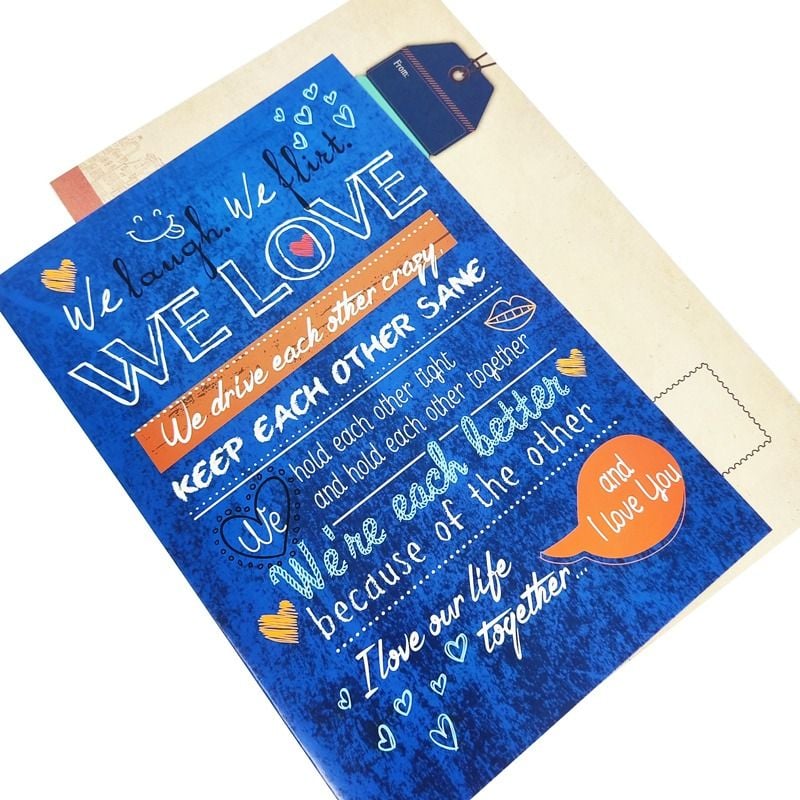 From:
We laugh. We flirt.
WE LOVE
We drive each other crazy,
KEEP EACH OTHER SANE
We hold each other tight
and hold each other together
We're each better
because of the other
I love our life
together...
and
I love You